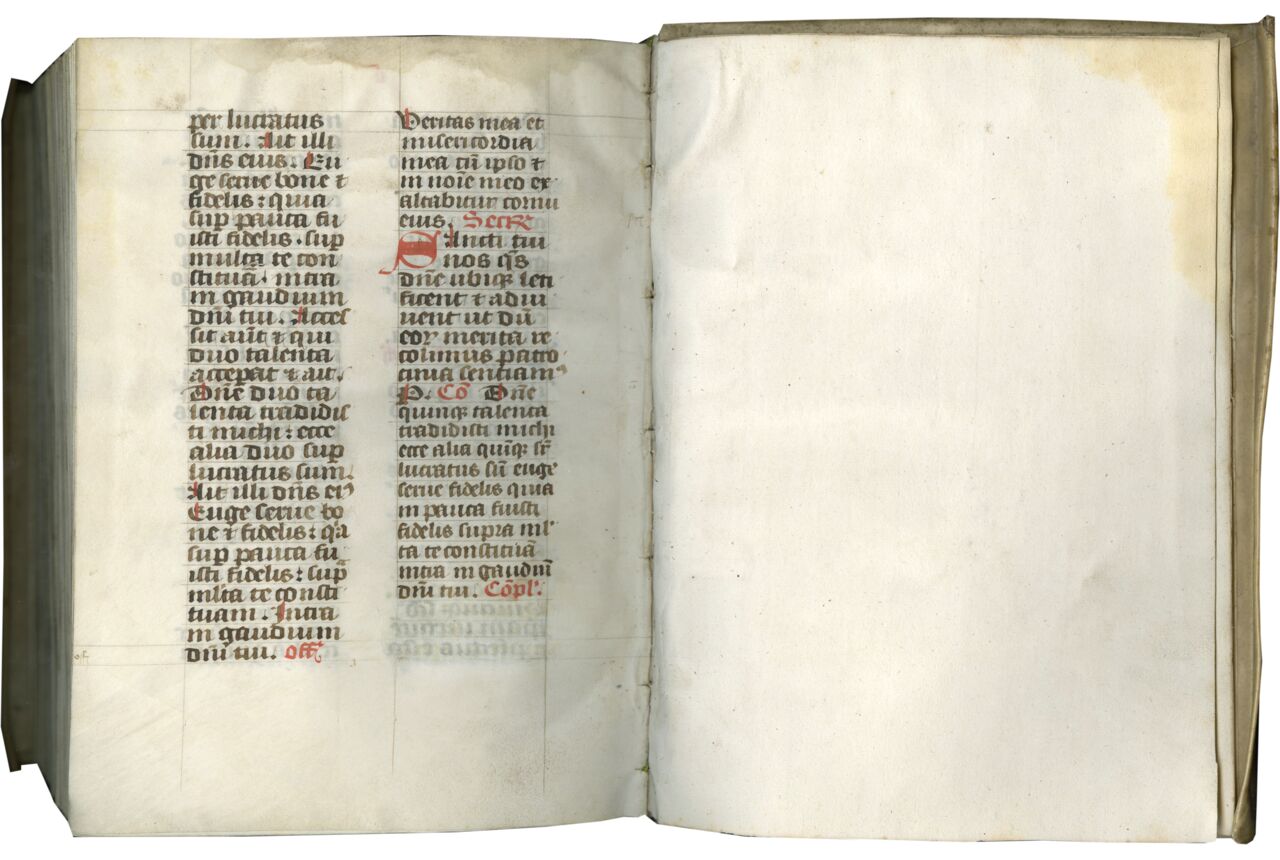 per lucratus
sum. Ait illi
dn̄s eius. Eu
ge serue bone ⁊
fidelis : quia
sup̱ pauca fu
isti fidelis . sup̱
multa te con
stituā . intra
in gaudium
dn̄i tui. Acces
sit aūt ⁊ qui
duo talenta
acceperat ⁊ ait.
Dn̄e duo ta
lenta tradidis
ti michi : ecce
alia duo sup̱
lucratus sum.
Ait illi dn̄s eiꝰ
Euge serue bo
ne ⁊ fidelis : qͥa
sup̱ pauca fu
isti fidelis : sup̱
mlta te consti
tuam . Intra
in gaudium
dn̄i tui. off̄
Veritas mea et
misericordia
mea cū ipso ⁊
in noīe meo ex
altabitur cornu
eius. Secr̄
Sancti tui
nos q̄s
dn̄e ubiqꝫ leti
ficent ⁊ adiu
uent ut dū
eoꝝ merita re
colimus patro
cinia sentiamꝰ
P. Cō Dn̄e
quinqꝫ talenta
tradidisti michi
ecce alia quīqꝫ sr̄
lucratus sū euge
serue fidelis quia
in pauca fuisti
fidelis supra ml
ta te constituā
intra in gaudiū
dn̄i tui. Cōpl'.